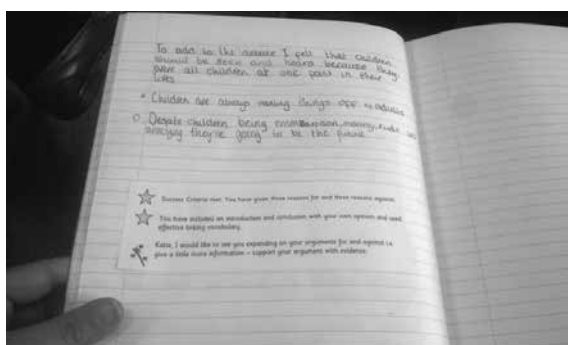 To add to the debate I felt that children
should be seen and heard because they
were all children at one point in their
lives
• Children are always making things opp to adults
Despite children being moaning, rude and
annoying they're going to be the future
Success Criteria met. You have given three reasons for and three reasons against.
You have included an introduction and conclusion with your own opinion and used
effective linking vocabulary.
Katie, I would like to see you expanding on your arguments for and against i.e.
give a little more information – support your argument with evidence.